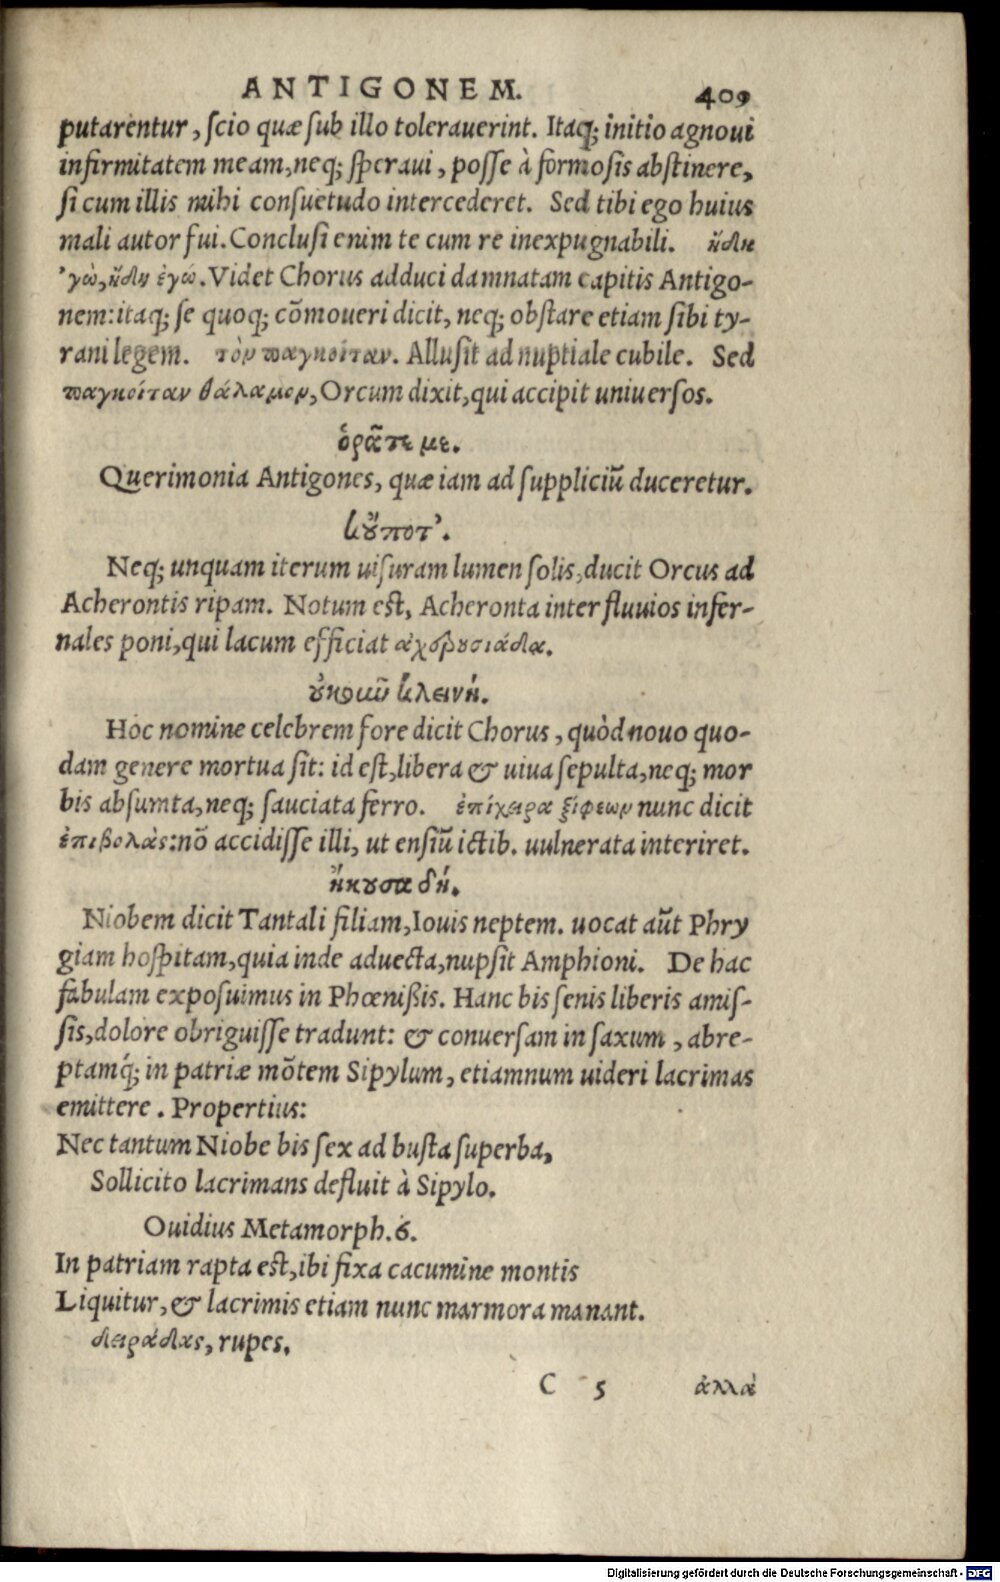 ANTIGONEM. 409
putarentur, scio quæ sub illo tolerauerint. Itaq; initio agnoui
infirmitatem meam, neq; speraui, posse à formosis abstinere,
si cum illis mihi consuetudo intercederet. Sed tibi ego huius
mali autor fui. Conclusi enim te cum re inexpugnabili. ἤδη
'γὼ, ἤδη ἐγώ. Videt Chorus adduci damnatam capitis Antigo-
nem: itaq; se quoq; cōmoueri dicit, neq; obstare etiam sibi ty-
rani legem. τὸν παγκοίταν. Allusit ad nuptiale cubile. Sed
παγκοίταν θάλαμον, Orcum dixit, qui accipit uniuersos.
ὁρᾶτε με.
Querimonia Antigones, quæ iam ad suppliciū duceretur.
κοὔποτ'.
Neq; unquam iterum uisuram lumen solis, ducit Orcus ad
Acherontis ripam. Notum est, Acheronta inter fluuios infer-
nales poni, qui lacum efficiat ἀχερουσιάδα.
οὐκοῦν κλεινή.
Hoc nomine celebrem fore dicit Chorus, quòd nouo quo-
dam genere mortua sit: id est, libera & uiua sepulta, neq; mor
bis absumta, neq; sauciata ferro. ἐπίχειρα ξίφεων nunc dicit
ἐπιβολὰς: nō accidisse illi, ut ensiū ictib. uulnerata interiret.
ἤκουσα δή.
Niobem dicit Tantali filiam, Iouis neptem. uocat aūt Phry
giam hospitam, quia inde aduecta, nupsit Amphioni. De hac
fabulam exposuimus in Phœnißis. Hanc bis senis liberis amis-
sis, dolore obriguisse tradunt: & conuersam in saxum, abre-
ptamq́; in patriæ mōtem Sipylum, etiamnum uideri lacrimas
emittere. Propertius:
Nec tantum Niobe bis sex ad busta superba,
Sollicito lacrimans defluit à Sipylo.
Ouidius Metamorph. 6.
In patriam rapta est, ibi fixa cacumine montis
Liquitur, & lacrimis etiam nunc marmora manant.
δειράδας, rupes.
C 5 ἀλλὰ
Digitalisierung gefördert durch die Deutsche Forschungsgemeinschaft - DFG